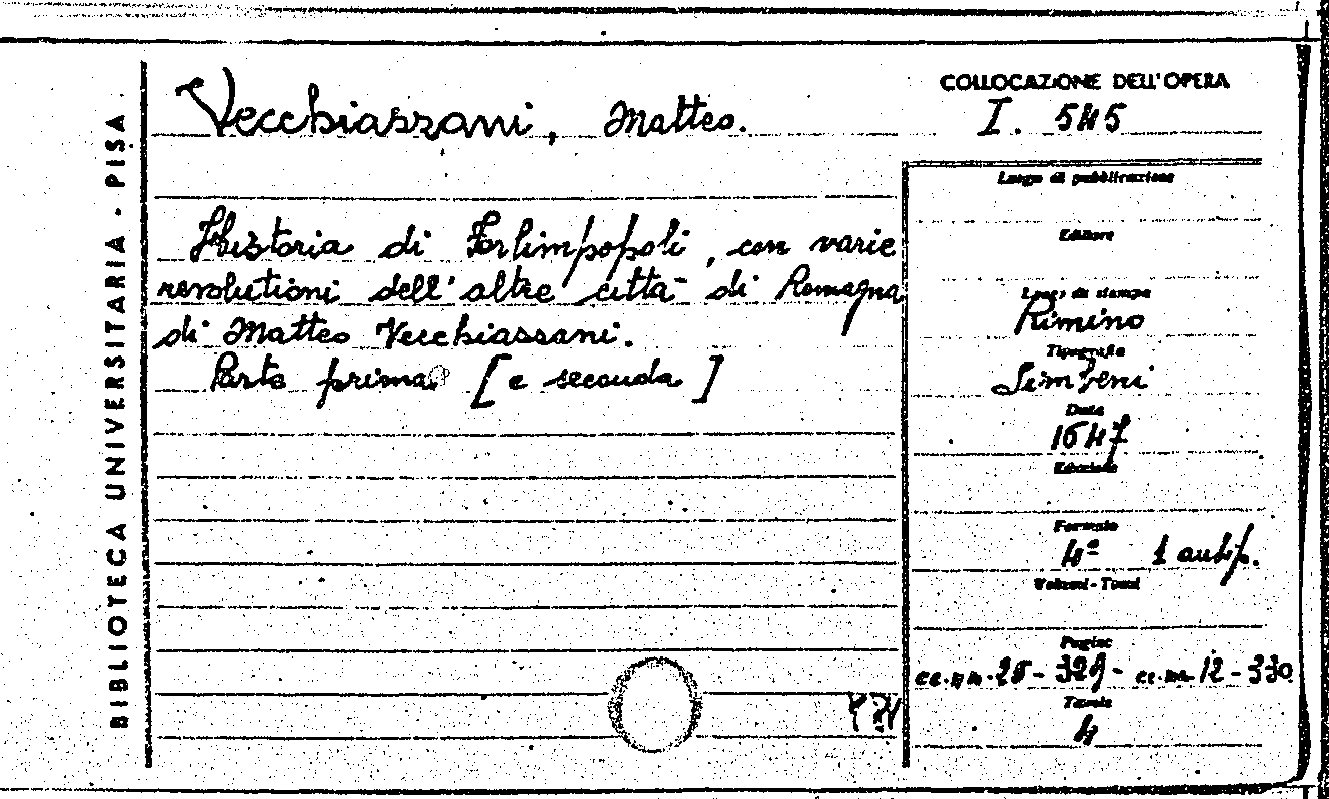 BIBLIOTECA UNIVERSITARIA - PISA
Vecchiazzani, Matteo.
COLLOCAZIONE DELL'OPERA
I. 545
Historia di Forlimpopoli, con varie
revolutioni dell'altre città di Romagna
di Matteo Vecchiazzani.
Parte prima [e seconda]
Luogo di pubblicazione
Editore
Luogo di stampa
Rimino
Tipografia
Simbeni
Data
1647
Edizione
Formato
4º 1 antip.
Volumi - Tomi
Pagine
cc.nn. 28 - 329 - cc.nn 12 - 330
Tavole
4